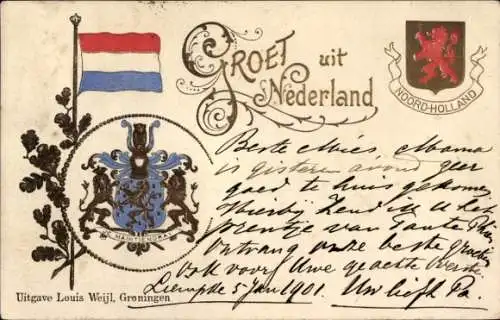 GROET uit
Nederland
NOORD-HOLLAND
JE MAINTIENDRAI
Beste Mies, Mama
is gisteren avond zeer
goed te huis gekomen
Hierbij zend ik U het
prentje van Tante
ontvang onze beste groeten
ook voor Uwe geachte
5 Jan 1901. Uw liefh Pa.
Uitgave Louis Weijl, Groningen